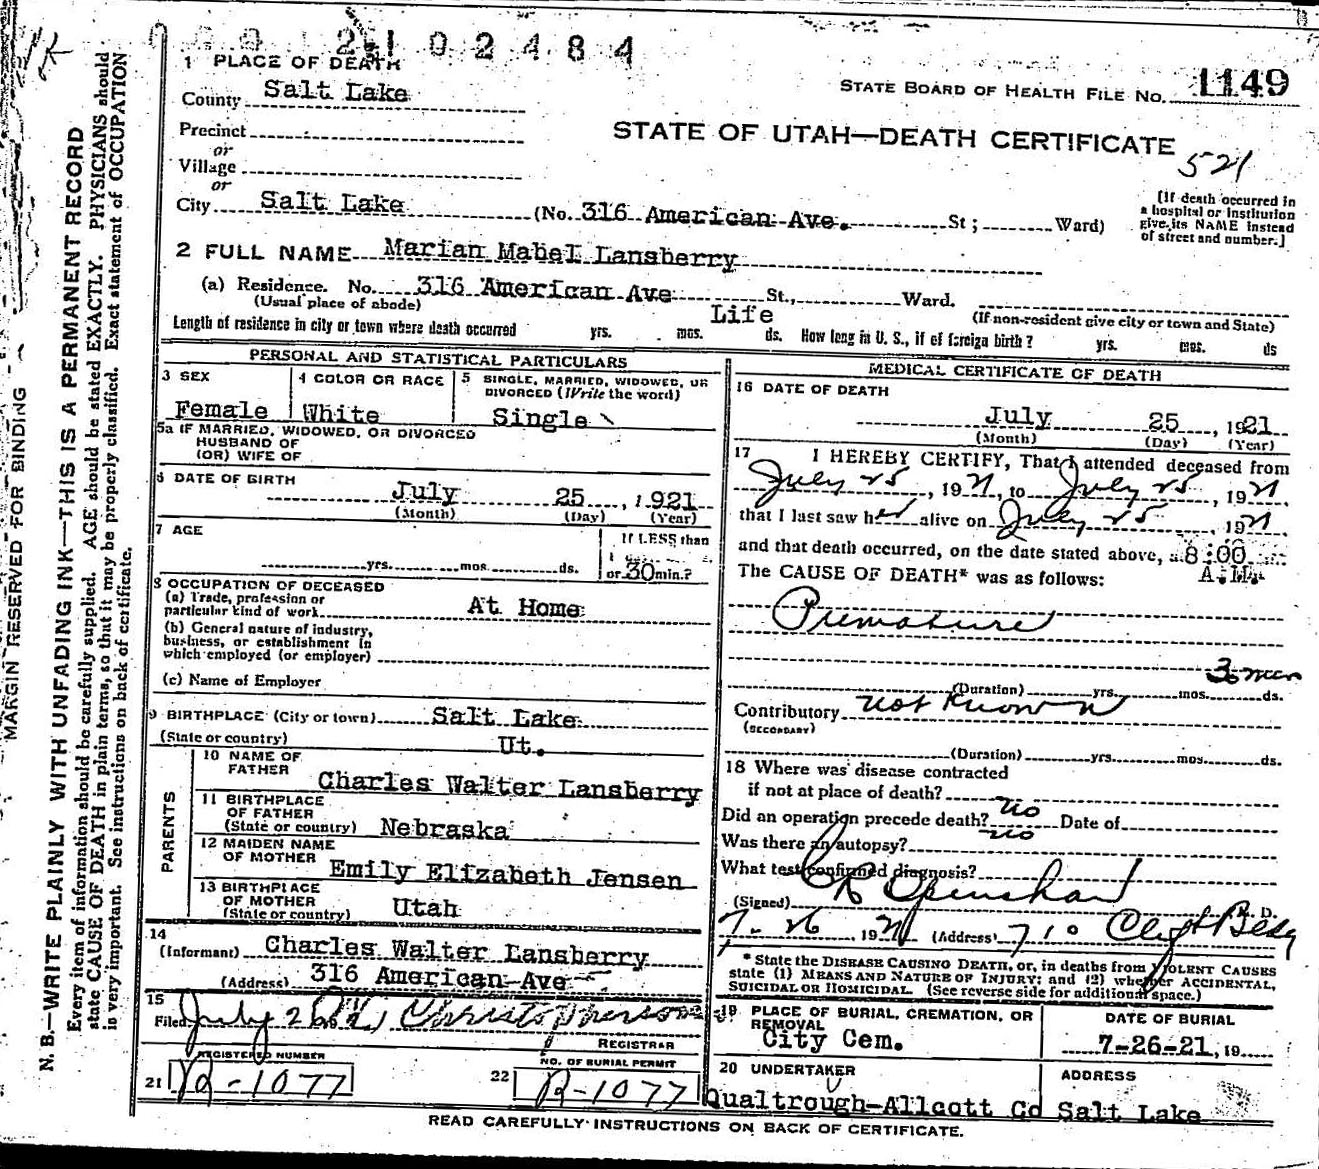 2102484
1 PLACE OF DEATH
County Salt Lake
STATE BOARD OF HEALTH FILE No. 1149
Precinct
or
STATE OF UTAH—DEATH CERTIFICATE
521
Village
or
City Salt Lake (No. 316 American Ave. St; Ward)
[If death occurred in
a hospital or institution
give its NAME instead
of street and number.]
2 FULL NAME Marian Mabel Lansberry
(a) Residence. No. 316 American Ave St., Ward.
(Usual place of abode)
(If non-resident give city or town and State)
Life
Length of residence in city or town where death occurred yrs. mos. ds. How long in U. S., if of foreign birth? yrs. mos. ds
PERSONAL AND STATISTICAL PARTICULARS
3 SEX
Female
4 COLOR OR RACE
White
5 SINGLE, MARRIED, WIDOWED, OR
DIVORCED (Write the word)
Single
5a IF MARRIED, WIDOWED, OR DIVORCED
HUSBAND OF
(OR) WIFE OF
6 DATE OF BIRTH
July 25, 1921
(Month) (Day) (Year)
7 AGE
yrs. mos. ds.
If LESS than
1
or 30 min.?
8 OCCUPATION OF DECEASED
(a) Trade, profession or
particular kind of work At Home
(b) General nature of industry,
business, or establishment in
which employed (or employer)
(c) Name of Employer
9 BIRTHPLACE (City or town) Salt Lake
(State or country) Ut.
PARENTS
10 NAME OF
FATHER Charles Walter Lansberry
11 BIRTHPLACE
OF FATHER
(State or country) Nebraska
12 MAIDEN NAME
OF MOTHER Emily Elizabeth Jensen
13 BIRTHPLACE
OF MOTHER
(State or country) Utah
14
(Informant) Charles Walter Lansberry
(Address) 316 American Ave
15
Filed July Christopherson
REGISTRAR
REGISTERED NUMBER
21 R-1077
NO. OF BURIAL PERMIT
22 R-1077
MEDICAL CERTIFICATE OF DEATH
16 DATE OF DEATH
July 25, 1921
(Month) (Day) (Year)
17 I HEREBY CERTIFY, That I attended deceased from
July 25, 1921, to July 25, 1921
that I last saw her alive on July 25, 1921
and that death occurred, on the date stated above, a 8:00
A.M.
The CAUSE OF DEATH* was as follows:
Premature
30 min
(Duration) yrs. mos. ds.
Contributory Not Known
(SECONDARY)
(Duration) yrs. mos. ds.
18 Where was disease contracted
if not at place of death?
Did an operation precede death? no Date of
Was there an autopsy? no
What test confirmed diagnosis?
(Signed) Openshaw M. D.
7-26 1921 (Address) 710 Clift Bldg
* State the DISEASE CAUSING DEATH, or, in deaths from VIOLENT CAUSES
state (1) MEANS AND NATURE OF INJURY; and (2) whether ACCIDENTAL,
SUICIDAL OR HOMICIDAL. (See reverse side for additional space.)
19 PLACE OF BURIAL, CREMATION, OR
REMOVAL
City Cem.
DATE OF BURIAL
7-26-21, 19
20 UNDERTAKER
Qualtrough-Allcott Co
ADDRESS
Salt Lake
READ CAREFULLY INSTRUCTIONS ON BACK OF CERTIFICATE.
MARGIN RESERVED FOR BINDING
N. B.—WRITE PLAINLY WITH UNFADING INK—THIS IS A PERMANENT RECORD
Every item of information should be carefully supplied. AGE should be stated EXACTLY. PHYSICIANS should
state CAUSE OF DEATH in plain terms, so that it may be properly classified. Exact statement of OCCUPATION
is very important. See instructions on back of certificate.